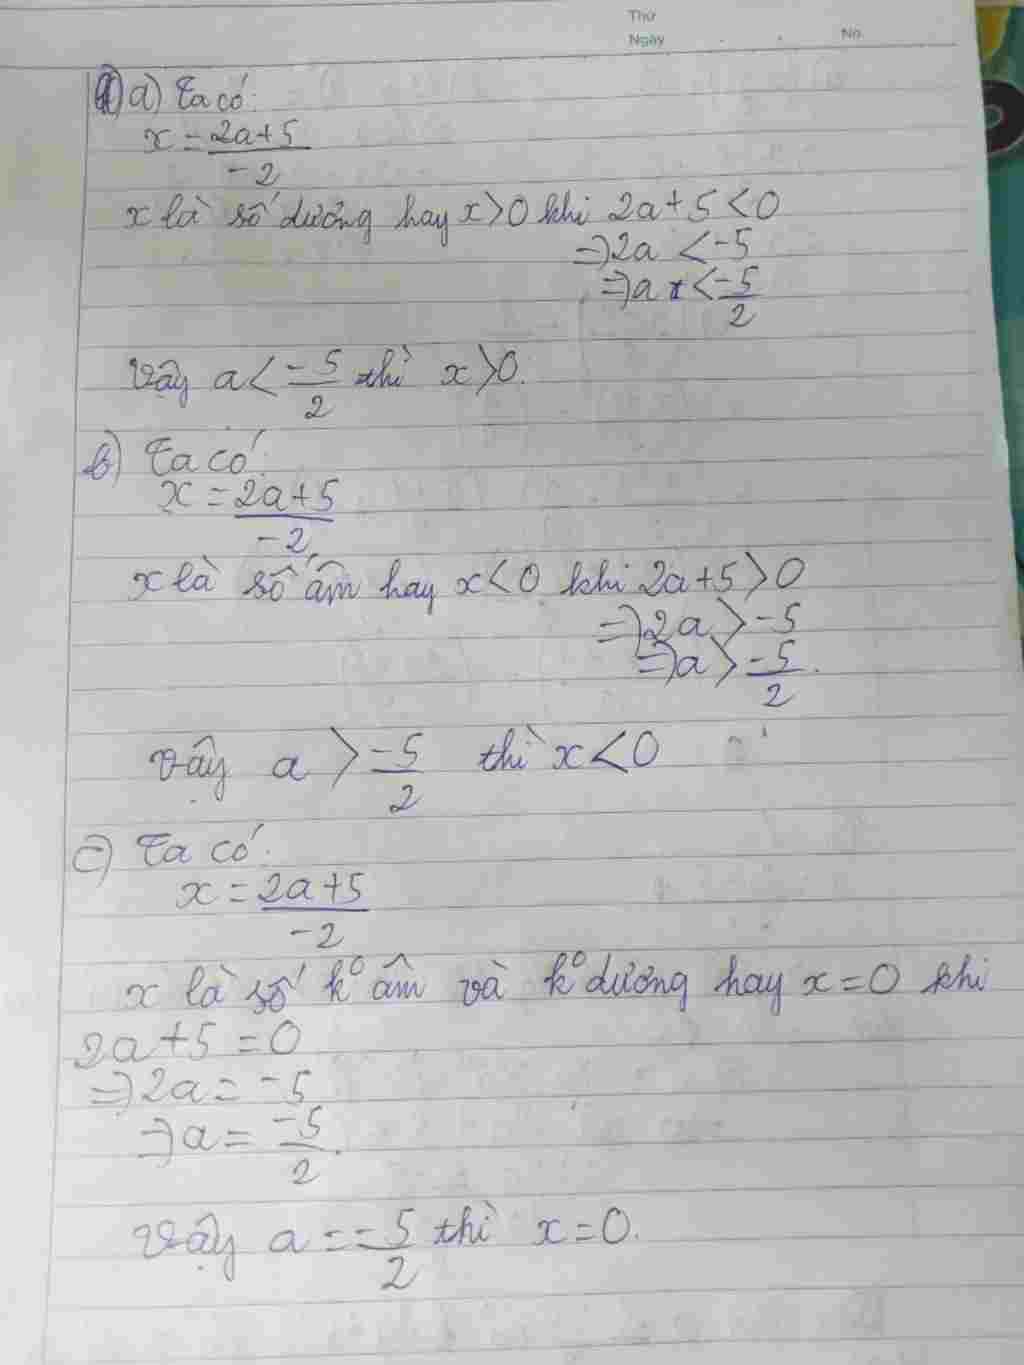 Thứ
Ngày . . No.
1) a) Ta có:
x = 2a+5
-2
x là số dương hay x>0 khi 2a+5<0
=> 2a < -5
=> a < -5
2
Vậy a < -5 thì x>0.
2
b) Ta có:
x = 2a+5
-2
x là số âm hay x<0 khi 2a+5>0
=> 2a > -5
=> a > -5.
2
Vậy a > -5 thì x<0
2
c) Ta có:
x = 2a+5
-2
x là số kº âm và kº dương hay x=0 khi
2a+5=0
=> 2a = -5
=> a = -5.
2
Vậy a = -5 thì x=0.
2